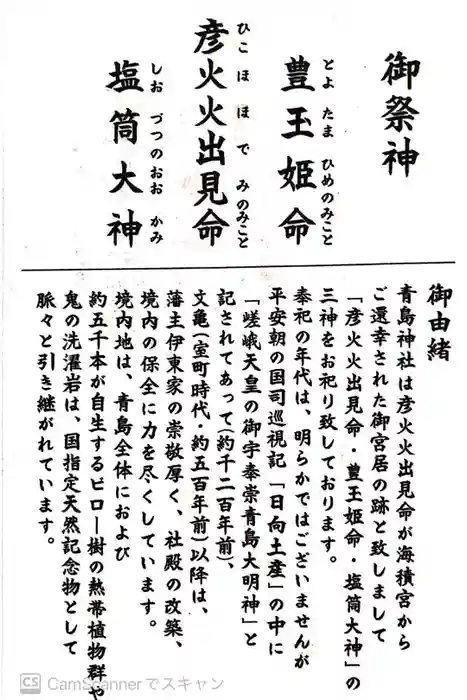 御祭神
豊玉姫命
とよ たま ひめのみこと
彦火火出見命
ひこ ほ ほ で みのみこと
塩筒大神
しお づつのおお かみ
御由緒
青島神社は彦火火出見命が海積宮から
ご還幸された御宮居の跡と致しまして
「彦火火出見命・豊玉姫命・塩筒大神」の
三神をお祀り致しております。
奉祀の年代は、明らかではございませんが
平安朝の国司巡視記「日向土産」の中に
「嵯峨天皇の御宇奉崇青島大明神」と
記されてあって(約千二百年前)、
文亀(室町時代・約五百年前)以降は、
藩主伊東家の崇敬厚く、社殿の改築、
境内の保全に力を尽くしています。
境内地は、青島全体におよび
約五千本が自生するビロー樹の熱帯植物群や
鬼の洗濯岩は、国指定天然記念物として
脈々と引き継がれています。
CS CamScannerでスキャン